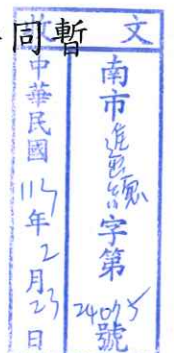 同暫
收文
南市字第24075號
中華民國113年2月23日